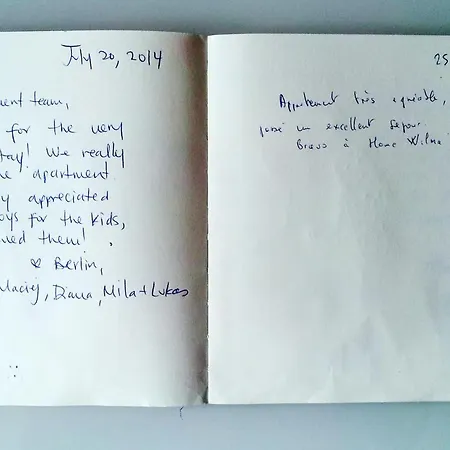 July 20, 2014
ment team,
for the very
tay! We really
he apartment
y appreciated
oys for the kids,
ned them!
Berlin,
Maciej, Diana, Mila + Lukas
25
Appartement très agréable,
passé un excellent séjour
Bravo à Home Wilna